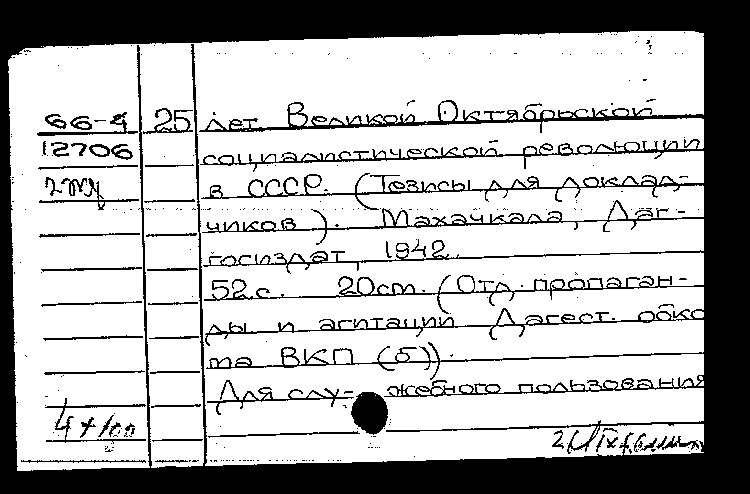 66-4 25 лет Великой Октябрьской
12706 социалистической революции
в СССР. (Тезисы для доклад-
чиков). Махачкала, Даг-
госиздат, 1942.
52 с. 20 cm. (Отд. пропаган-
ды и агитации Дагест. обко
та ВКП (б)).
Для слу- жебного пользования